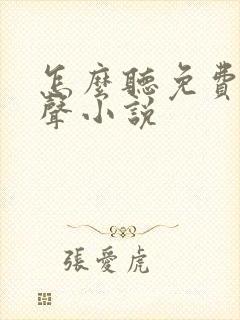 怎麼聽免費
聲小説
張愛虎